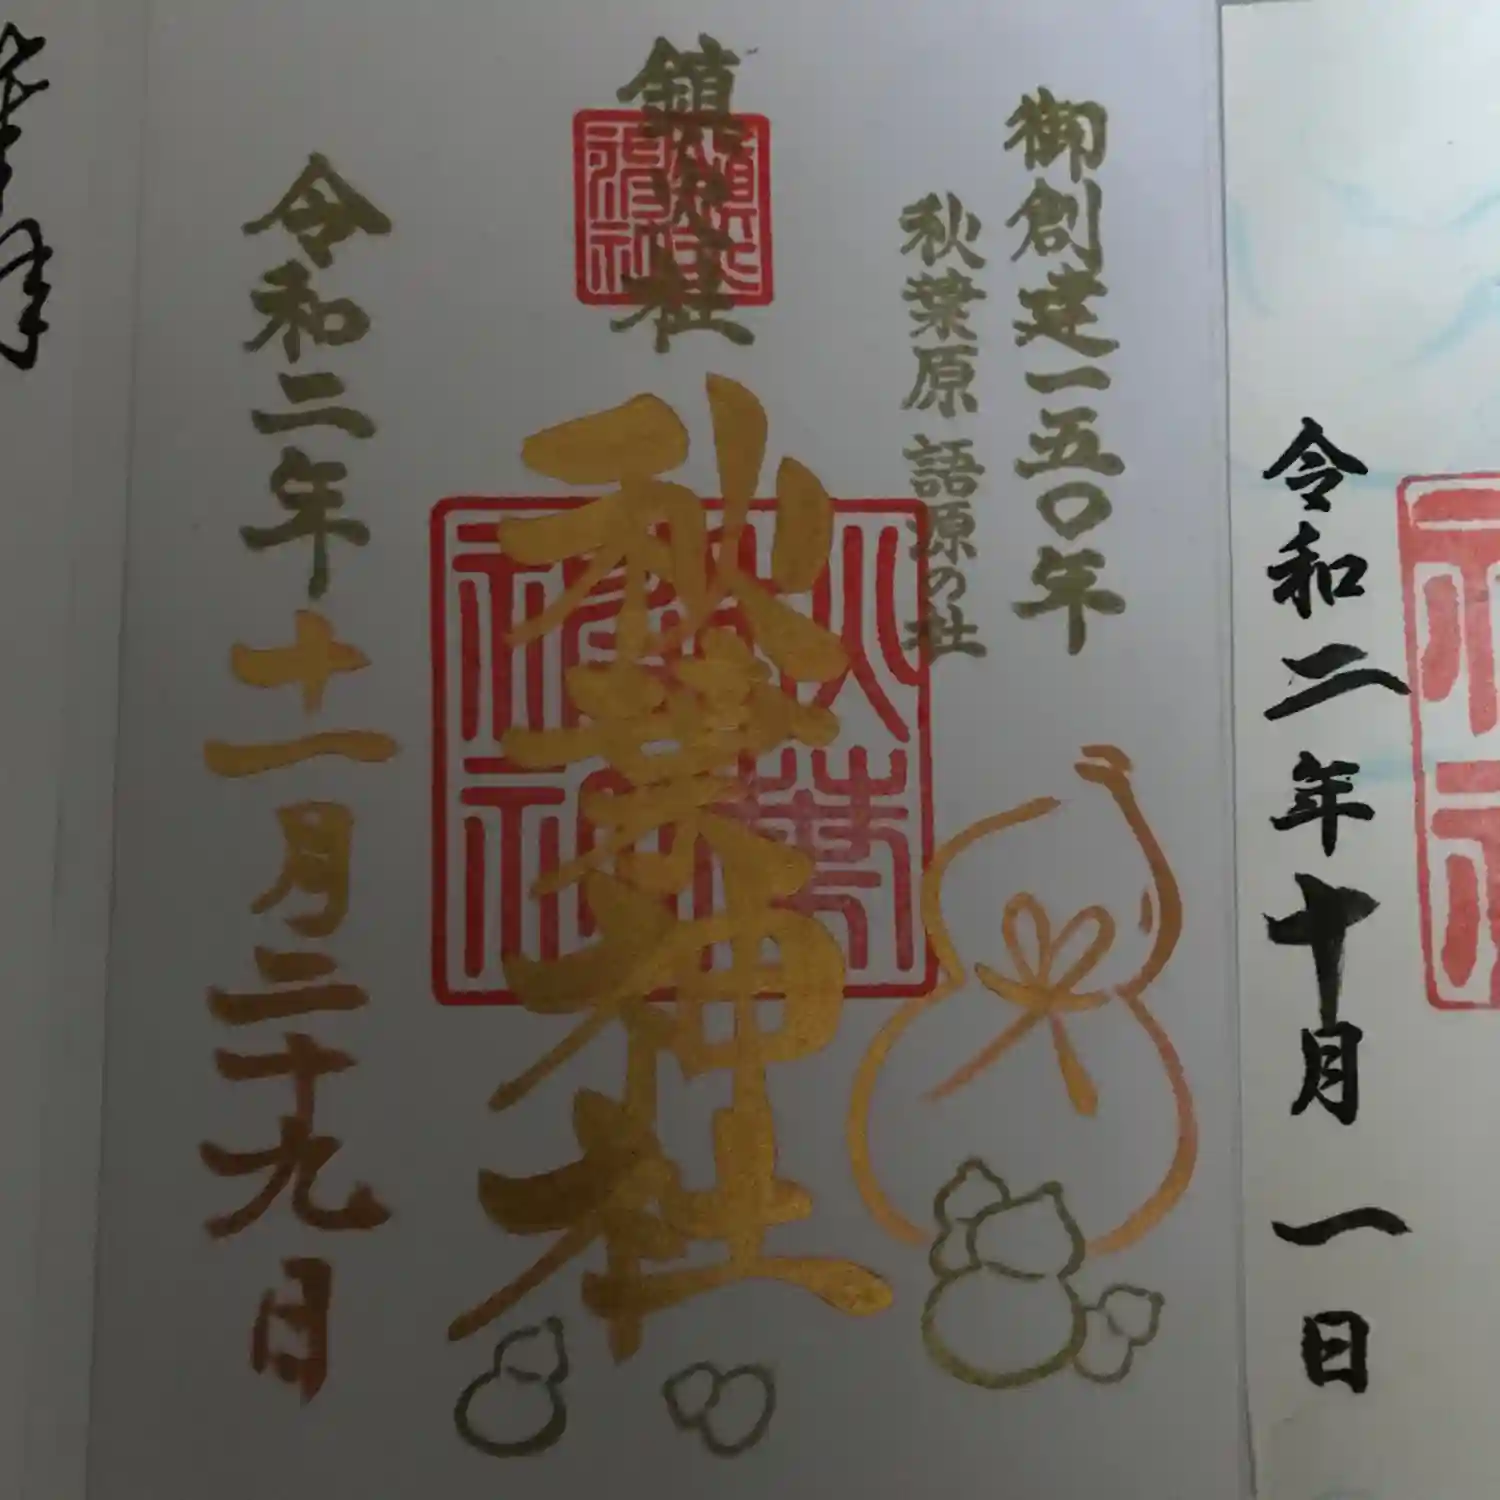 令和二年十月一日
御創建一五〇年
秋葉原語源の社
鎮火社
秋葉神社
令和二年十一月二十九日
拝